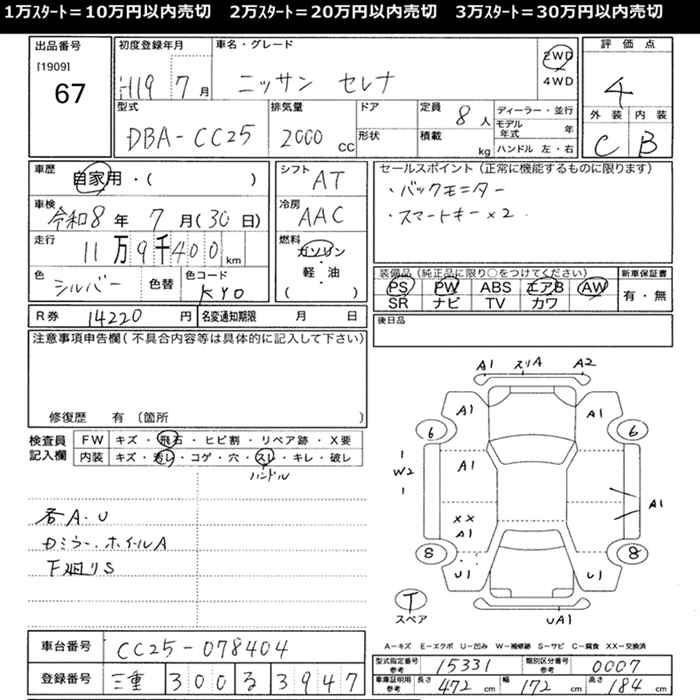 1万スタート＝10万円以内売切　2万スタート＝20万円以内売切　3万スタート＝30万円以内売切
出品番号
[1909]
67
初度登録年月
H19 7月
車名・グレード
ニッサン セレナ
2WD
4WD
評価点
4
外装 内装
C B
型式
DBA-CC25
排気量
2000 CC
ドア
形状
定員
8人
積載
kg
ディーラー・並行
モデル年式 年
ハンドル 左・右
車歴
自家用・( )
車検
令和8年 7月(30日)
走行
11万9千400km
色
シルバー
色替
色コード
KY0
シフト
AT
冷房
AAC
燃料
ガソリン
軽・油
( )
セールスポイント (正常に機能するものに限ります)
・バックモニター
・スマートキー×2.
装備品 (純正品に限り○をつけてください)
PS PW ABS エアB AW
SR ナビ TV カワ
新車保証書
有・無
R券 14220円
名変通知期限 月 日
後日品
注意事項申告欄(不具合内容等は具体的に記入して下さい)
修復歴 有 〔箇所 〕
検査員記入欄
FW キズ・飛石・ヒビ割・リペア跡・X要
内装 キズ・汚レ・コゲ・穴・スレ・キレ・破レ
ハンドル
各A.U
Dミラー.ホイルA
下廻りS
A1 スリA A2
A1 A1
6 6
W2
A1
A1
XX
A1
8 8
U1 U1
T
スペア
UA1
A-キズ E-エクボ U-凹み W-補修跡 S-サビ C-腐食 XX-交換済
車台番号
CC25-078404
登録番号
三重 300 る 3947
型式指定番号 参考
15331
類別区分番号 参考
0007
車庫証明用 参考
長さ 472cm
幅 172cm
高さ 184cm